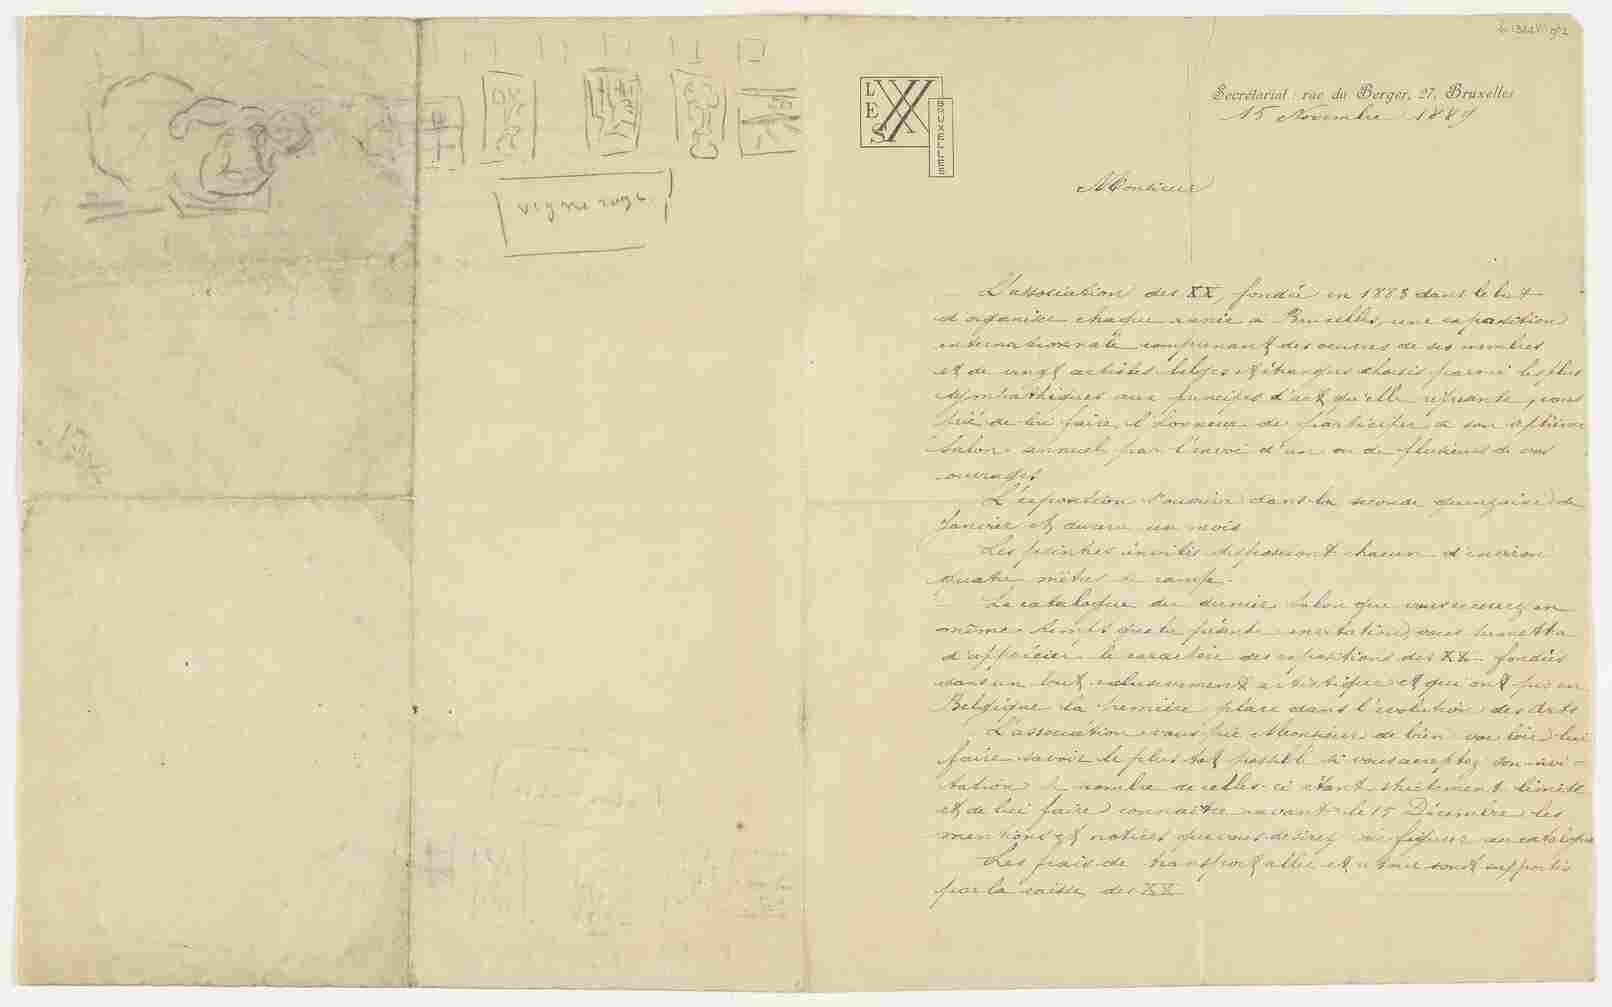 vigne rouge
LES XX
BRUXELLES
Secrétariat : rue du Berger, 27, Bruxelles
15 Novembre 1889
Monsieur
L'association des XX, fondée en 1883 dans le but
d'organiser chaque année à Bruxelles, une exposition
internationale comprenant des oeuvres de ses membres
et de vingt artistes belges et étrangers choisis parmi les plus
sympathiques aux principes d'art qu'elle représente, vous
prie de lui faire l'honneur de participer à son septième
Salon annuel par l'envoi d'un ou de plusieurs de vos
ouvrages.
L'exposition s'ouvrira dans la seconde quinzaine de
Janvier et durera un mois
Les peintres invités disposeront chacun d'environ
quatre mètres de rampe.
Le catalogue du dernier Salon que vous recevrez en
même temps que la présente invitation, vous permettra
d'apprécier le caractère des expositions des XX fondées
dans un but exclusivement artistique et qui ont pris en
Belgique la première place dans l'évolution des Arts
L'association vous prie Monsieur de bien vouloir lui
faire savoir le plus tôt possible si vous acceptez son invi-
tation le nombre de celles-ci étant strictement limité
et de lui faire connaître avant le 15 Décembre les
mentions et notices que vous désirez voir figurer au catalogue
Les frais de transport aller et retour sont supportés
par la caisse des XX